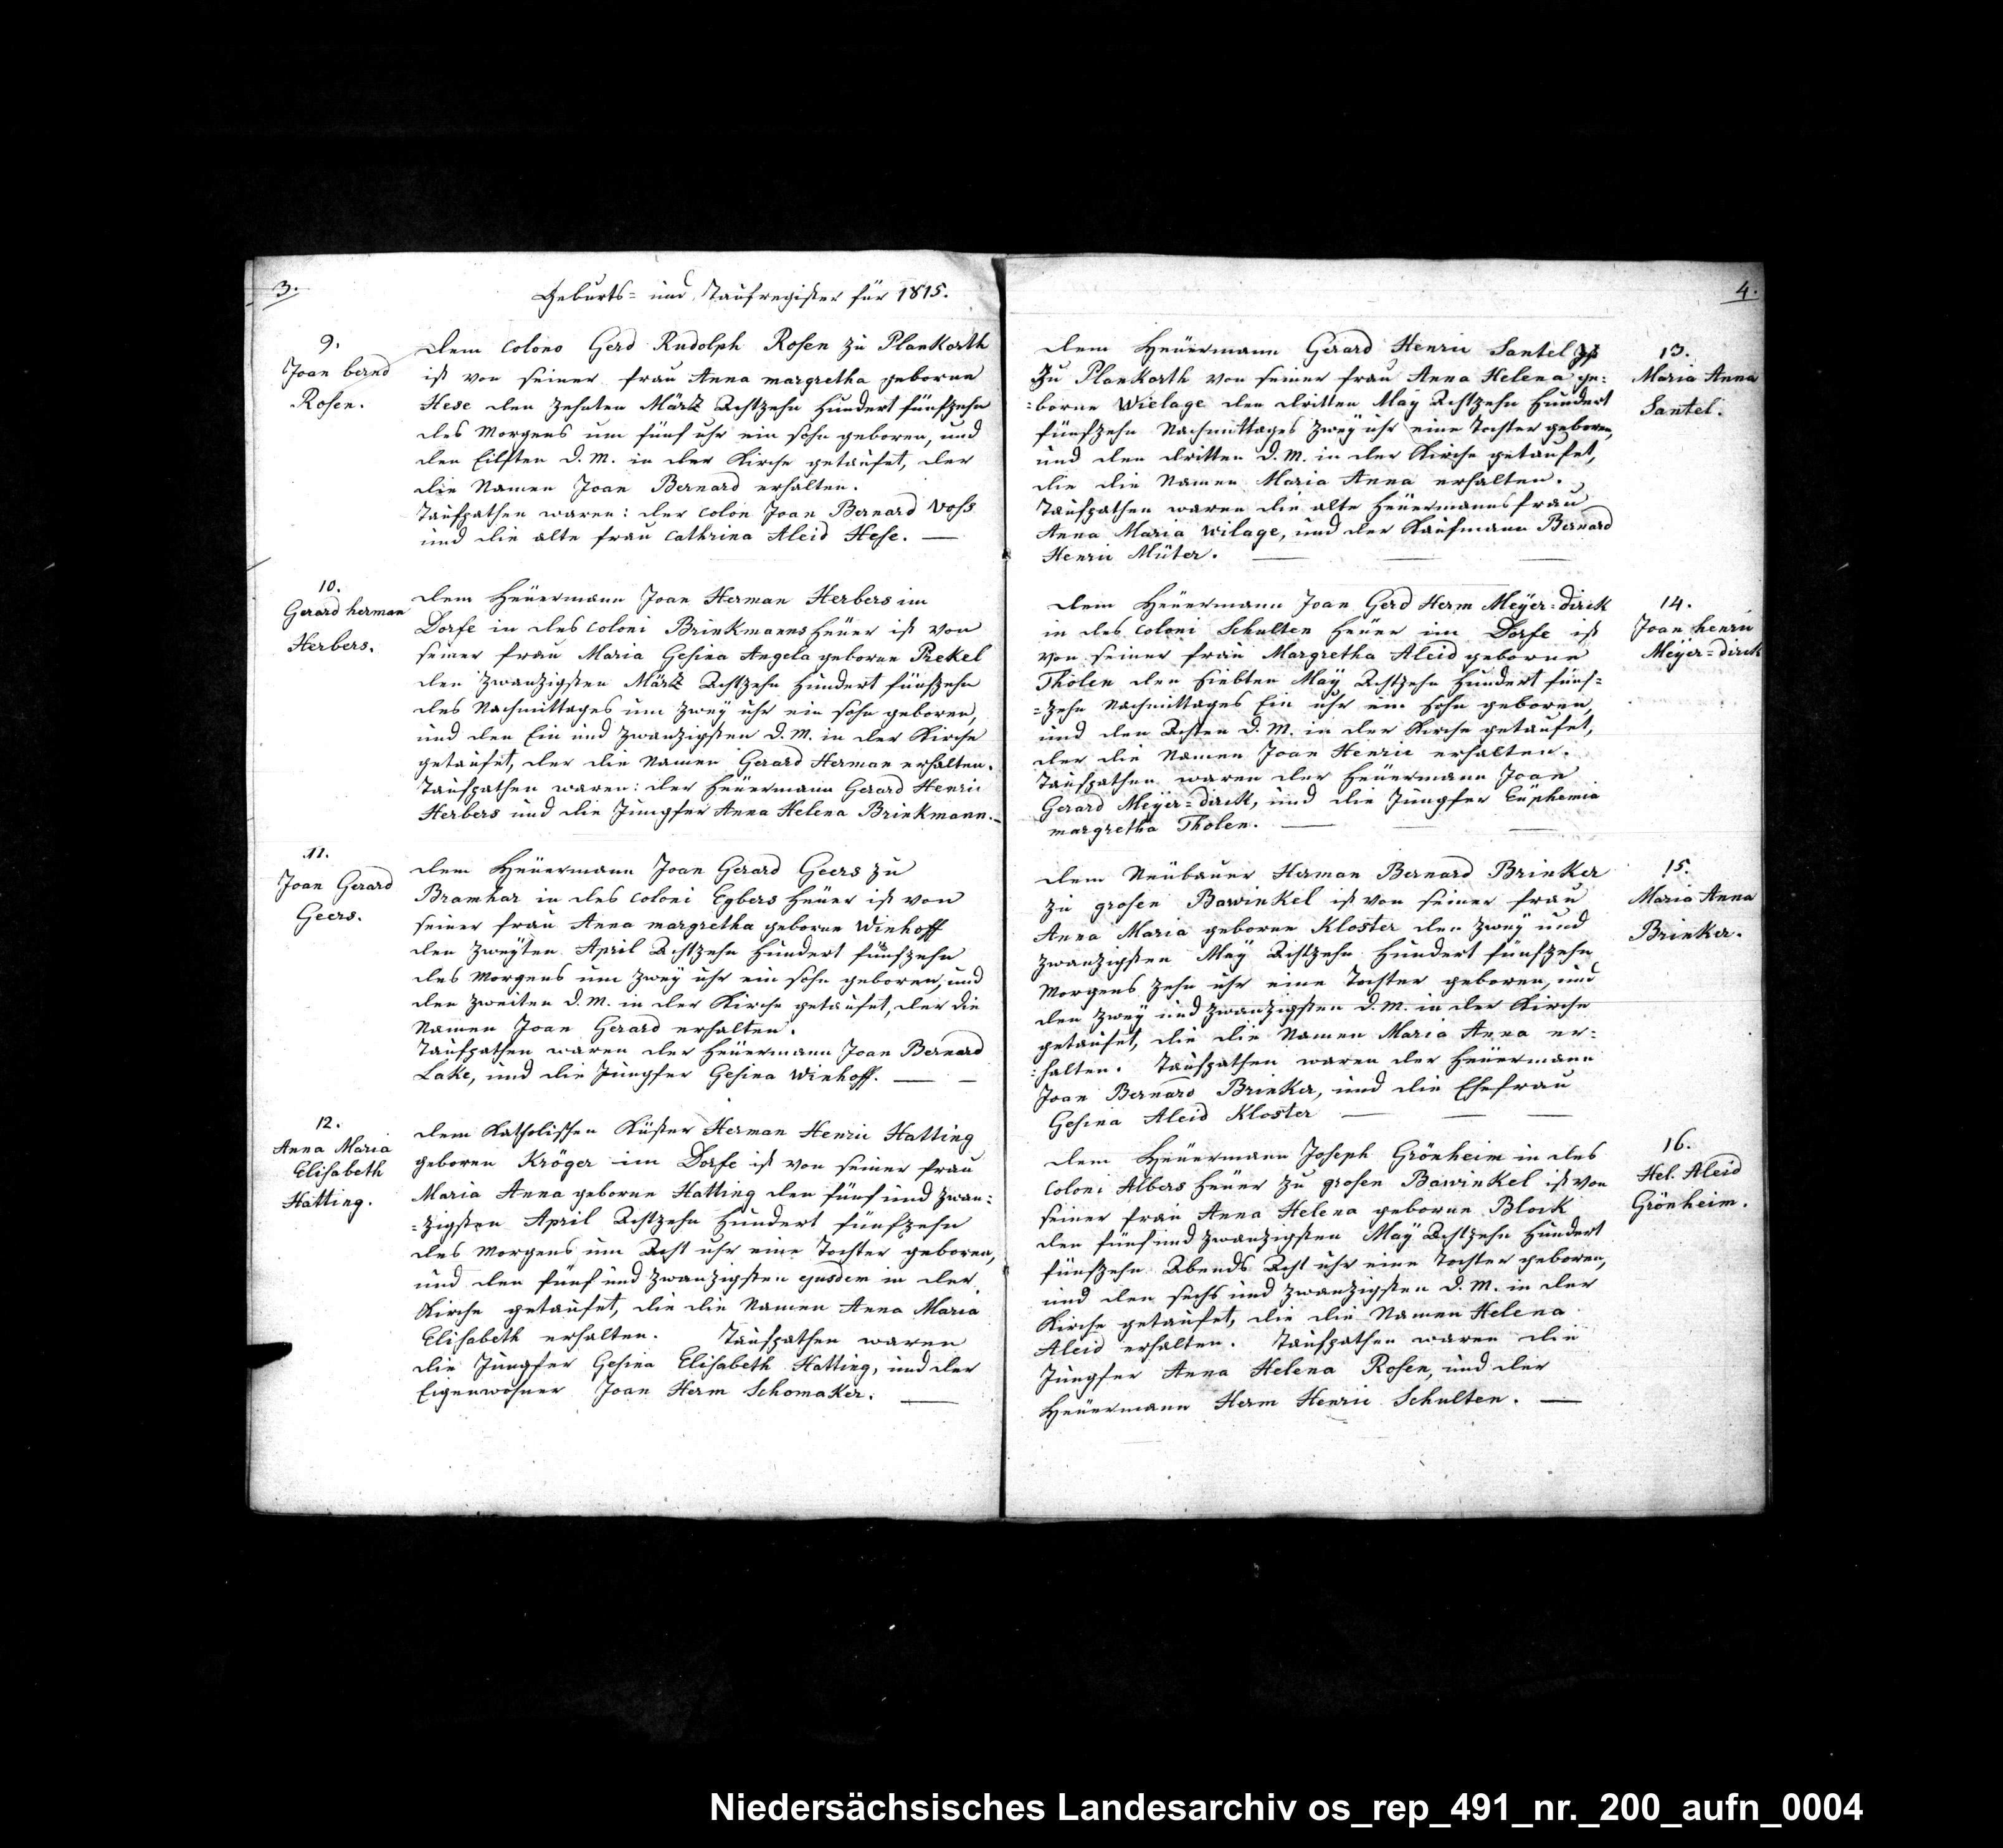 3.
Geburts- und Taufregister für 1815.
9.
Joan bernd
Rosen.
dem Colono Gerd Rudolph Rosen zu Plankorth
ist von seiner frau Anna margretha geborne
Hese den zehnten Märtz Achtzehn hundert fünfzehn
des Morgens um fünf uhr ein sohn geboren, und
den Eilften d. M. in der Kirche getaufet, der
die Namen Joan Bernard erhalten.
Taufpathen waren: der Colon Joan Bernard Voss
und die alte frau Cathrina Aleid Hese. —
10.
Gerard herman
Herbers.
dem Heuermann Joan Herman Herbers im
Dorfe in des Coloni Brinkmanns heuer ist von
seiner frau Maria Gesina Angela geborne Prekel
den zwanzigsten Märtz Achtzehn hundert fünfzehn
des Nachmittages um zweÿ uhr ein sohn geboren,
und den Ein und zwanzigsten d. M. in der Kirche
getaufet, der die Namen Gerard Herman erhalten.
Taufpathen waren: der heuermann Gerard Henric
Herbers und die Jungfer Anna Helena Brinkmann. —
11.
Joan Gerard
Geers.
dem Heuermann Joan Gerard Geers zu
Bramhar in des Coloni Egbers heuer ist von
seiner frau Anna margretha geborne Winhoff
den zweÿten April Achtzehn hundert fünfzehn
des Morgens um zweÿ uhr ein sohn geboren, und
den zweiten d. M. in der Kirche getaufet, der die
Namen Joan Gerard erhalten.
Taufpathen waren der heuermann Joan Bernard
Lake, und die Jungfer Gesina Winhoff. — —
12.
Anna Maria
Elisabeth
Hatting.
dem Katholischen Küster Herman Henric Hatting
geboren Kröger im Dorfe ist von seiner frau
Maria Anna geborne Hatting den fünf und zwan=
=zigsten April Achtzehn hundert fünfzehn
des Morgens um Acht uhr eine Tochter geboren,
und den fünf und zwanzigsten ejusdem in der
Kirche getaufet, die die Namen Anna Maria
Elisabeth erhalten. Taufpathen waren
die Jungfer Gesina Elisabeth Hatting, und der
Eigenwohner Joan Herm Schomaker. —
4.
13.
Maria Anna
Santel.
dem Heuermann Gerard Henric Santel
Zu Plankorth von seiner frau Anna Helena ge=
=borne Wielage den dritten Maÿ Achtzehn hundert
fünfzehn Nachmittages zweÿ uhr eine Tochter geboren,
und den dritten d. M. in der Kirche getaufet,
die die Namen Maria Anna erhalten.
Taufpathen waren die alte Heuermanns frau
Anna Maria Wilage, und der Kaufmann Bernard
Henric Müter. — — —
14.
Joan henric
Meÿer=dirck
dem Heuermann Joan Gerd Herm Meÿer=dirck
in des Coloni Schulten heuer im Dorfe ist
von seiner frau Margretha Aleid geborne
Tholen den siebten Maÿ Achtzehn hundert fünf=
=zehn Nachmittages Ein uhr ein sohn geboren,
und den Achten d. M. in der Kirche getaufet,
der die Namen Joan Henric erhalten.
Taufpathen waren der heuermann Joan
Gerard Meÿer=dirck, und die Jungfer Euphemia
margretha Tholen. — — —
15.
Maria Anna
Brinker.
dem Neubauer Herman Bernard Brinker
zu grosen Bawinkel ist von seiner frau
Anna Maria geborne Kloster den zweÿ und
zwanzigsten Maÿ Achtzehn hundert fünfzehn
Morgens zehn uhr eine Tochter geboren, und
den zweÿ und zwanzigsten d. M. in der Kirche
getaufet, die die Namen Maria Anna er=
=halten. Taufpathen waren der heuermann
Joan Bernard Brinker, und die Ehefrau
Gesina Aleid Kloster — — —
16.
Hel. Aleid
Grönheim.
dem Heuermann Joseph Grönheim in des
Coloni Albers heuer zu grosen Bawinkel ist von
seiner frau Anna Helena geborne Block
den fünf und zwanzigsten Maÿ Achtzehn hundert
fünfzehn Abends Acht uhr eine Tochter geboren,
und den sechs und zwanzigsten d. M. in der
Kirche getaufet, die die Namen Helena
Aleid erhalten. Taufpathen waren die
Jungfer Anna Helena Rosen, und der
Heuermann Herm Henric Schulten. —
Niedersächsisches Landesarchiv os_rep_491_nr._200_aufn_0004